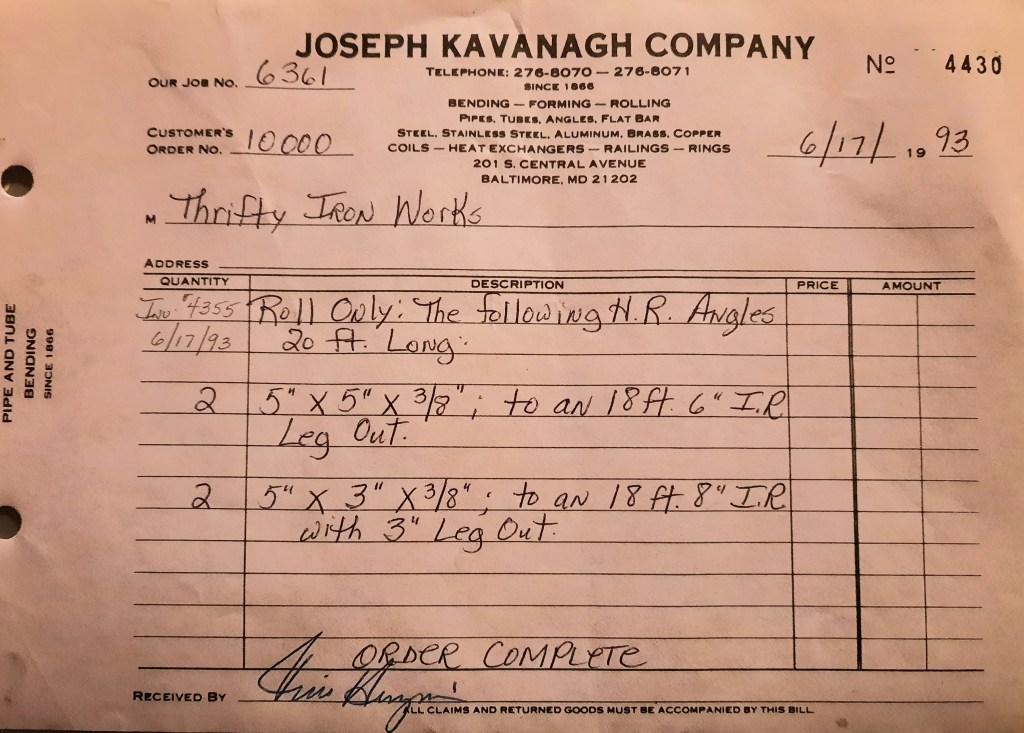 JOSEPH KAVANAGH COMPANY
TELEPHONE: 276-8070 — 276-8071
SINCE 1866
BENDING — FORMING — ROLLING
PIPES, TUBES, ANGLES, FLAT BAR
STEEL, STAINLESS STEEL, ALUMINUM, BRASS, COPPER
COILS — HEAT EXCHANGERS — RAILINGS — RINGS
201 S. CENTRAL AVENUE
BALTIMORE, MD 21202
No 4430
OUR JOB NO. 6361
CUSTOMER'S
ORDER NO. 10000
6/17/ 1993
M Thrifty Iron Works
ADDRESS
QUANTITY DESCRIPTION PRICE AMOUNT
Inv. #4355 Roll Only: The following H.R. Angles
6/17/93 20 ft. Long:
2 5" X 5" X 3/8"; to an 18 ft. 6" I.R.
Leg Out.
2 5" X 3" X 3/8"; to an 18 ft. 8" I.R
with 3" Leg Out.
ORDER COMPLETE
RECEIVED BY
ALL CLAIMS AND RETURNED GOODS MUST BE ACCOMPANIED BY THIS BILL.
PIPE AND TUBE
BENDING
SINCE 1866